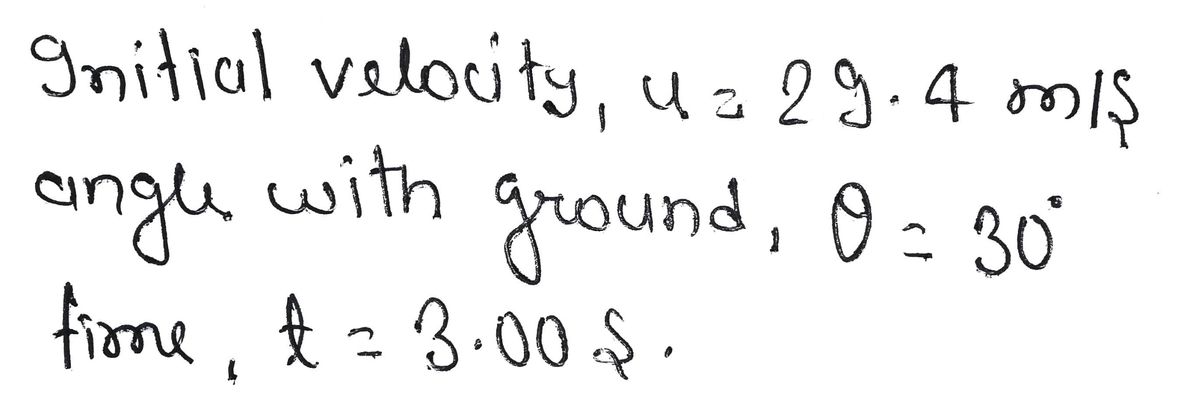 Initial velocity, u = 29.4 m/s
angle with ground, θ = 30°
time, t = 3.00 s.